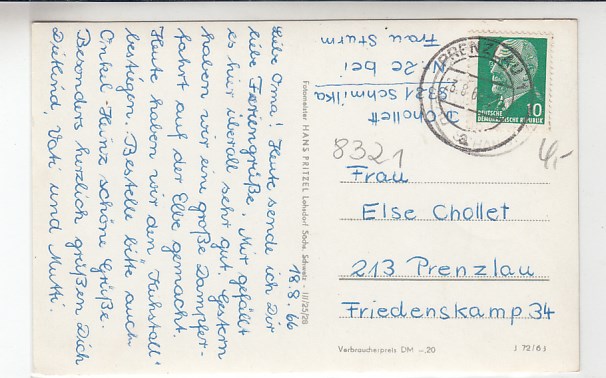 18.8.66
Liebe Oma! Heute sende ich Dir
liebe Feriengrüße. Mir gefällt
es hier überall sehr gut. Gestern
haben wir eine große Dampfer-
fahrt auf der Elbe gemacht.
Heute haben wir den "Kuhstall"
bestiegen. Bestelle bitte auch
Onkel-Heinz schöne Grüße.
Besonders herzlich grüßen Dich
Dietlind, Vati und Mutti.
Fotomeister HANS PRITZEL Lohsdorf, Sächs. Schweiz - III/25/28
D. Chollett
8321 Schmilka
N. 2c bei
Frau Sturm
PRENZLAU 1
a
10
DEUTSCHE
DEMOKRATISCHE REPUBLIK
8321
4,-
Frau
Else Chollet
213 Prenzlau
Friedenskamp 34
Verbraucherpreis DM -,20
J 72/6 J